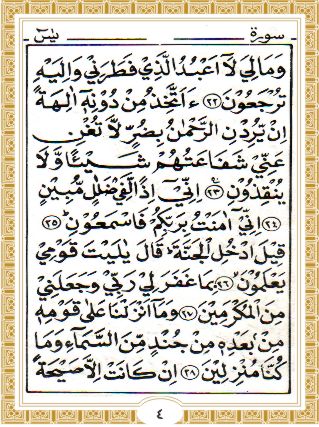 سورة يٰسٓ
وَمَالِيَ لَآ اَعْبُدُ الَّذِيْ فَطَرَنِيْ وَاِلَيْهِ
تُرْجَعُوْنَ ﴿٢٢﴾ ءَاَتَّخِذُ مِنْ دُوْنِهٖٓ اٰلِهَةً
اِنْ يُّرِدْنِ الرَّحْمٰنُ بِضُرٍّ لَّا تُغْنِ
عَنِّيْ شَفَاعَتُهُمْ شَيْـًٔا وَّلَا
يُنْقِذُوْنِ ﴿٢٣﴾ اِنِّيْٓ اِذًا لَّفِيْ ضَلٰلٍ مُّبِيْنٍ
﴿٢٤﴾ اِنِّيْٓ اٰمَنْتُ بِرَبِّكُمْ فَاسْمَعُوْنِ ﴿٢٥﴾
قِيْلَ ادْخُلِ الْجَنَّةَ قَالَ يٰلَيْتَ قَوْمِيْ
يَعْلَمُوْنَ ﴿٢٦﴾ بِمَا غَفَرَ لِيْ رَبِّيْ وَجَعَلَنِيْ
مِنَ الْمُكْرَمِيْنَ ﴿٢٧﴾ وَمَآ اَنْزَلْنَا عَلٰى قَوْمِهٖ
مِنْۢ بَعْدِهٖ مِنْ جُنْدٍ مِّنَ السَّمَآءِ وَمَا
كُنَّا مُنْزِلِيْنَ ﴿٢٨﴾ اِنْ كَانَتْ اِلَّا صَيْحَةً
٤